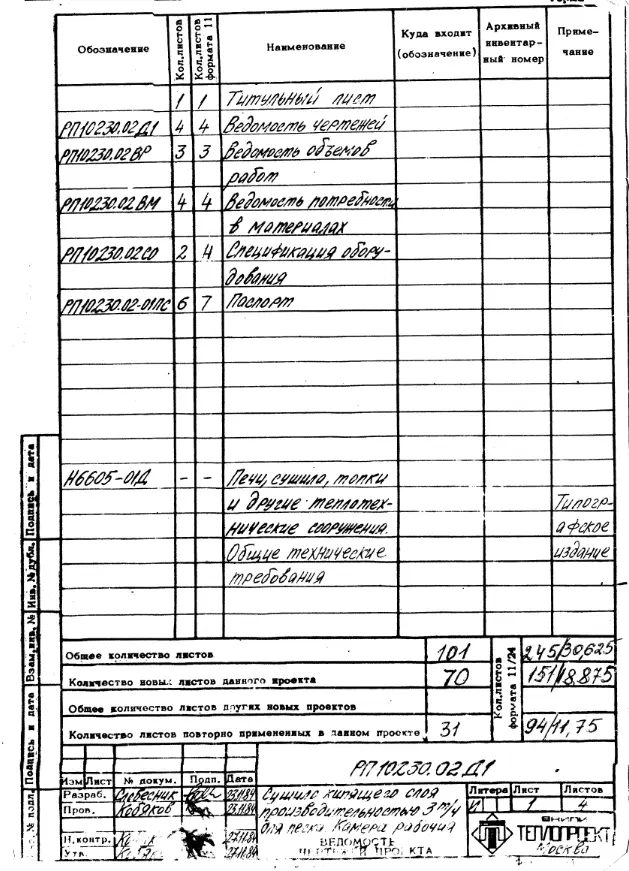 Обозначение Кол.листов Кол.листов формата 11 Наименование Куда входит (обозначение) Архивный инвентар-ный номер Приме-чание
1 1 Титульный лист
РП10230.02Д1 4 4 Ведомость чертежей
РП10230.02ВР 3 3 Ведомость объемов
работ
РП10230.02ВМ 4 4 Ведомость потребности
в материалах
РП10230.02СО 2 4 Спецификация обору-
дования
РП10230.02-01ПС 6 7 Паспорт
Н6605-01Д - - Печи, сушила, топки
и другие теплотех- Типогр-
нические сооружения. афское
Общие технические издание
требования
Общее количество листов 101 Кол.листов формата 11/24 245/30,625
Количество новых листов данного проекта 70 151/18,875
Общее количество листов других новых проектов
Количество листов повторно примененных в данном проекте 31 94/11,75
РП10230.02Д1
Изм Лист № докум. Подп. Дата
Разраб. Словесник 23.11.84
Пров. Кобяков 23.11.84
Н.контр. 27.11.84
Утв. 27.11.84
Сушило кипящего слоя
производительностью 3 т/ч
для песка. Камера рабочая
ВЕДОМОСТЬ
ЧЕРТЕЖЕЙ ПРОЕКТА
Литера Лист Листов
И 1 4
ВНИПИ
ТЕПЛОПРОЕКТ
Москва
Подпись и дата
Инв. № дубл.
Взам.инв. №
Подпись и дата
Инв. № подл.